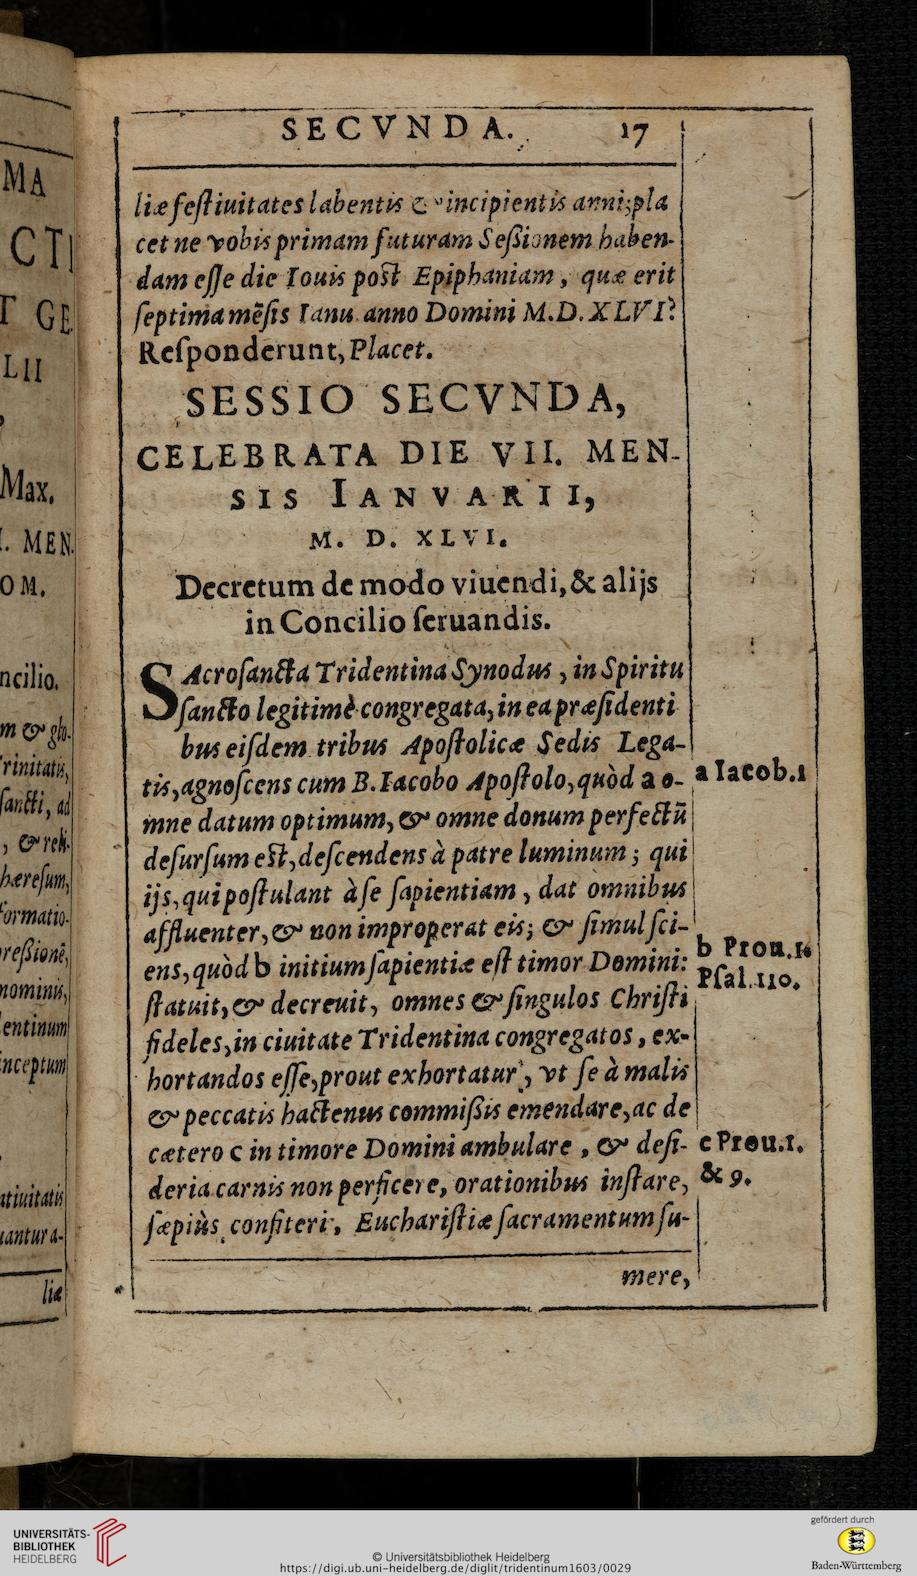 MA
CTI
T GE
LII
Max.
I. MEN.
OM.
ncilio.
m & glo-
rinitatis,
ſancti, ad
, & reli-
hæreſum,
formatio-
reßionē,
nominis,
entinum
inceptum
atiuitatis
uantur a-
liæ
SECVNDA. 17
liæ feſtiuitates labentis & incipientis anni; pla
cet ne vobis primam futuram Seßionem haben-
dam eſſe die Iouis post Epiphaniam, quæ erit
ſeptima mēſis Ianu. anno Domini M.D.XLVI?
Reſponderunt, Placet.
SESSIO SECVNDA,
CELEBRATA DIE VII. MEN-
SIS IANVARII,
M. D. XLVI.
Decretum de modo viuendi, & alijs
in Concilio ſeruandis.
SAcroſancta Tridentina Synodus, in Spiritu
ſancto legitimè congregata, in ea præſidenti
bus eiſdem tribus Apoſtolicæ Sedis Lega-
tis, agnoſcens cum B. Iacobo Apoſtolo, quòd a o-
mne datum optimum, & omne donum perfectū
deſurſum eſt, deſcendens à patre luminum; qui
ijs, qui poſtulant à ſe ſapientiam, dat omnibus
affluenter, & non improperat eis; & ſimul ſci-
ens, quòd b initium ſapientiæ eſt timor Domini:
ſtatuit, & decreuit, omnes & ſingulos Chriſti
fideles, in ciuitate Tridentina congregatos, ex-
hortandos eſſe, prout exhortatur, vt ſe à malis
& peccatis hactenus commißis emendare, ac de
cætero c in timore Domini ambulare, & deſi-
deria carnis non perficere, orationibus inſtare,
ſæpiùs confiteri, Euchariſtiæ ſacramentum ſu-
mere,
a Iacob.1
b Prou.1.
Pſal.110.
c Prou.1.
& 9.
UNIVERSITÄTS-
BIBLIOTHEK
HEIDELBERG
© Universitätsbibliothek Heidelberg
https://digi.ub.uni-heidelberg.de/diglit/tridentinum1603/0029
gefördert durch
Baden-Württemberg